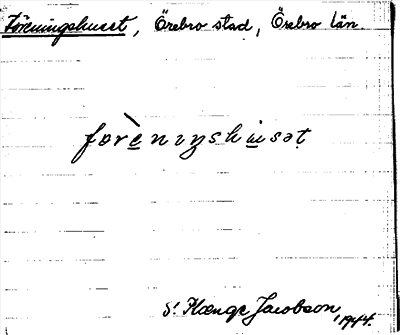 Föreningshuset, Örebro stad, Örebro län.
förènɪŋshusət
S. Plænge Jacobson, 1944.